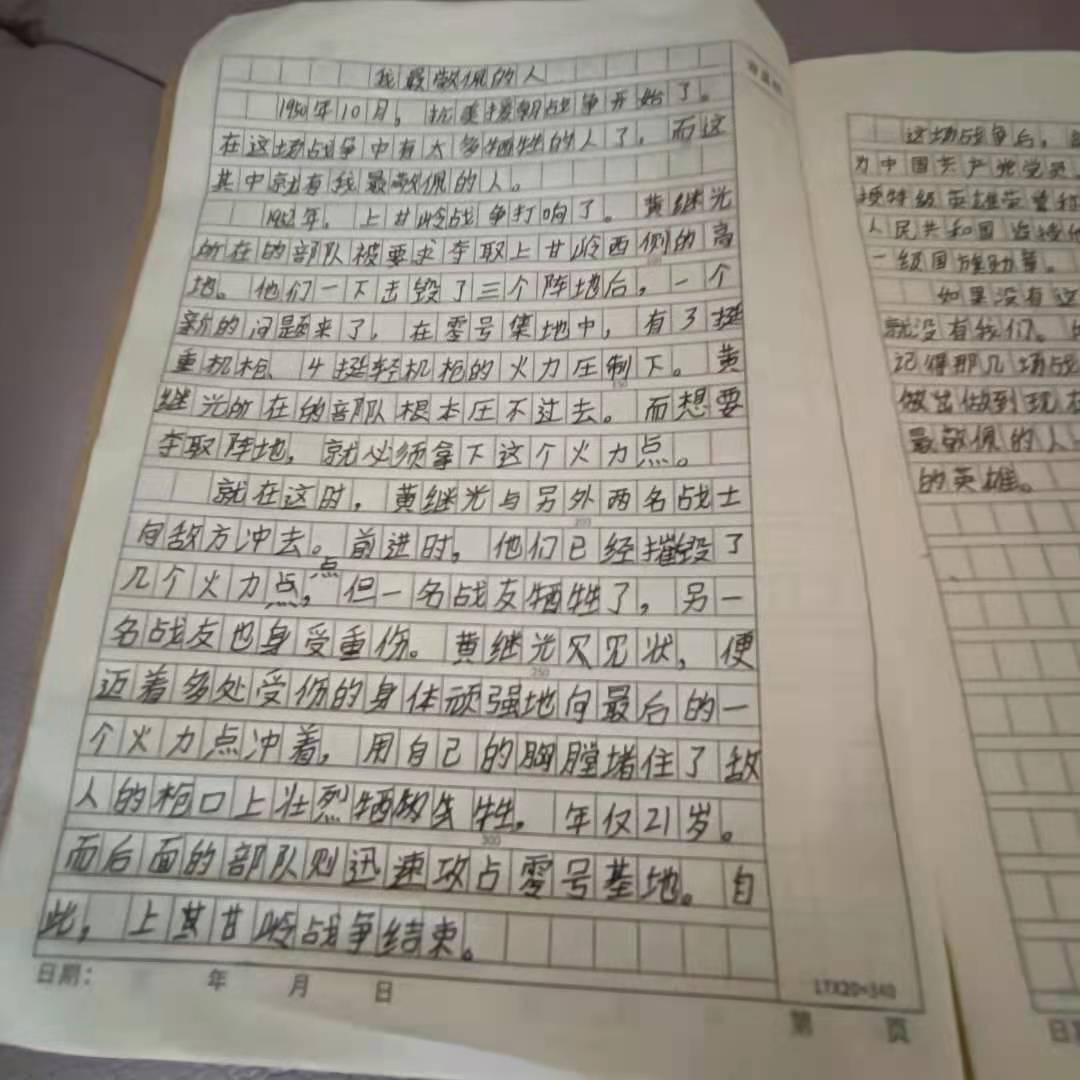 我最敬佩的人
1950年10月，抗美援朝战争开始了。
在这场战争中有太多牺牲的人了，而这
其中就有我最敬佩的人。
1952年，上甘岭战争打响了。黄继光
所在的部队被要求夺取上甘岭西侧的高
地。他们一下击毁了三个阵地后，一个
新的问题来了，在零号集地中，有3挺
重机枪、4挺轻机枪的火力压制下。黄
继光所在的部队根本压不过去。而想要
夺取阵地，就必须拿下这个火力点。
就在这时，黄继光与另外两名战士
向敌方冲去。前进时，他们已经摧毁了
几个火力点，但一名战友牺牲了，另一
名战友也身受重伤。黄继光见状，便
迈着多处受伤的身体顽强地向最后的一
个火力点冲着，用自己的胸膛堵住了敌
人的枪口上壮烈牺牲，年仅21岁。
而后面的部队则迅速攻占零号基地。自
此，上甘岭战争结束。
日期： 年 月 日
17X20=340
第 页
这场战争后，
为中国共产党党员。
授特级英雄荣誉称
人民共和国
一级国旗勋章。
如果没有这
就没有我们。
记得那几场战
做出做到现在
最敬佩的人
的英雄。